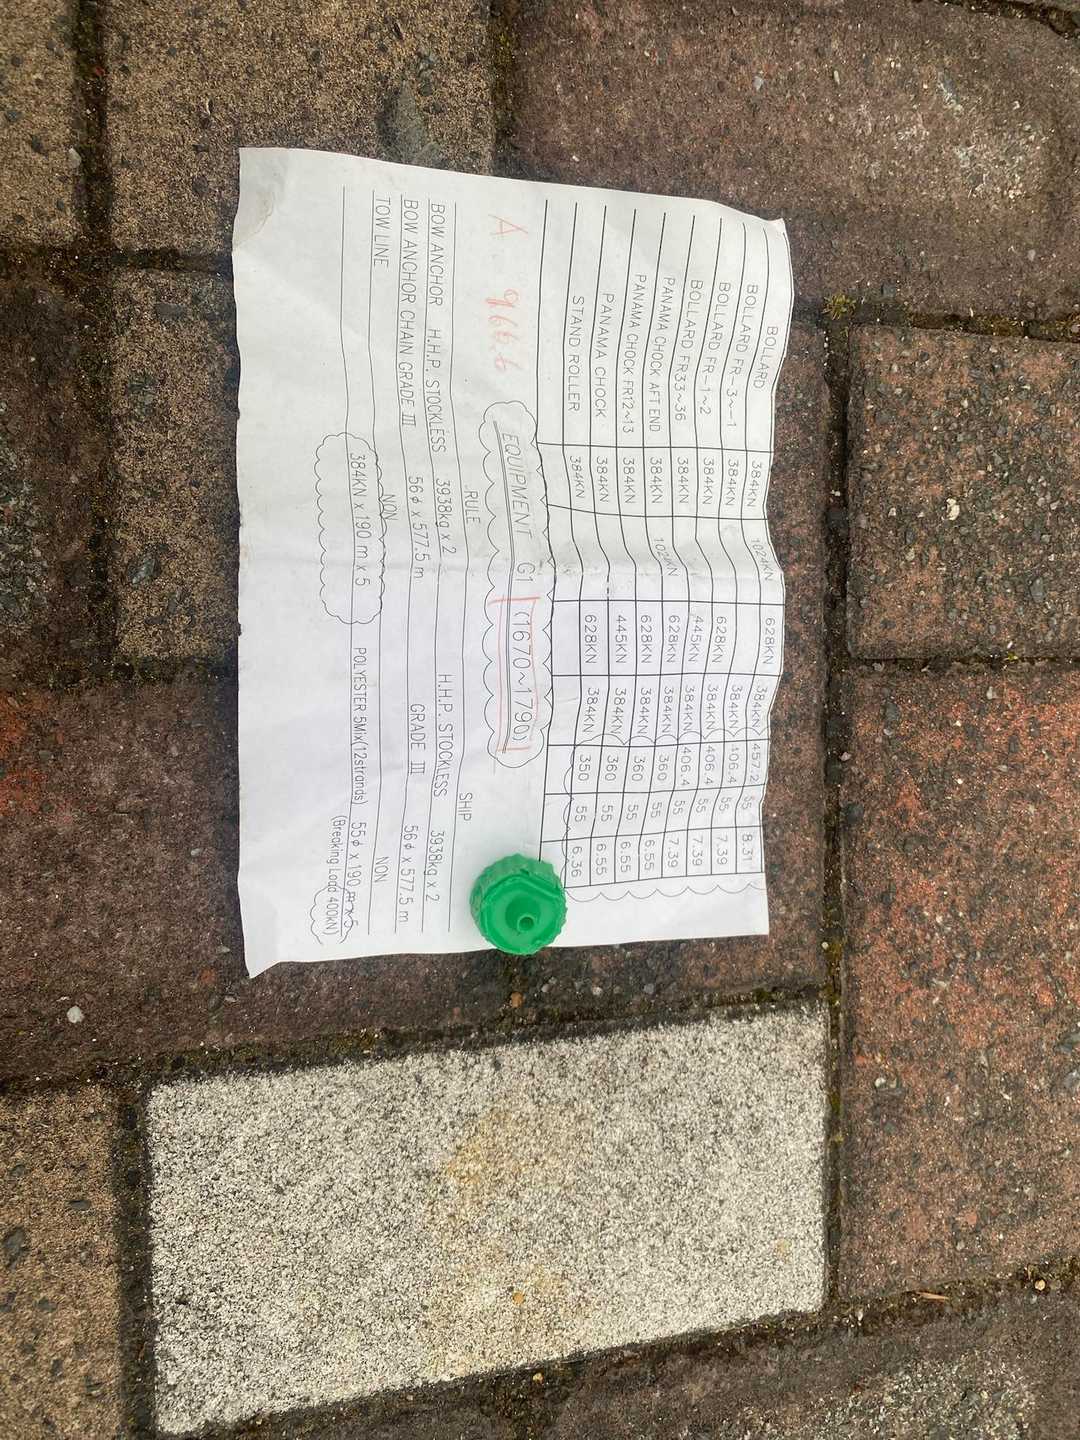 BOLLARD 384KN 1024KN 628KN 384KN 457.2 55 8.31
BOLLARD FR-3~-1 384KN 384KN 406.4 55 7.39
BOLLARD FR-1~2 384KN 628KN 384KN 406.4 55 7.39
BOLLARD FR33~36 384KN 445KN 384KN 406.4 55 7.39
PANAMA CHOCK AFT END 384KN 1024KN 628KN 384KN 360 55 6.55
PANAMA CHOCK FR12~13 384KN 628KN 384KN 360 55 6.55
PANAMA CHOCK 384KN 445KN 384KN 360 55 6.55
STAND ROLLER 384KN 628KN 384KN 350 55 6.36
A 966.6 EQUIPMENT G1 (1670~1790)
RULE SHIP
BOW ANCHOR H.H.P. STOCKLESS 3938kg x 2 H.H.P. STOCKLESS 3938kg x 2
BOW ANCHOR CHAIN GRADE III 56φ x 577.5 m GRADE III 56φ x 577.5 m
TOW LINE NON NON
384KN x 190 m x 5 POLYESTER 5Mix(12strands) 55φ x 190 m x 5
(Breaking Load 400kN)